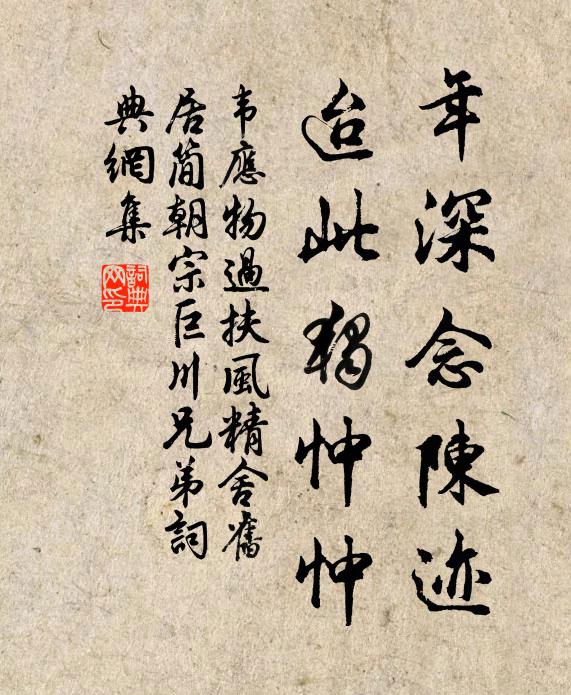 年深念陳迹
迨此獨忡忡
韦應物過扶風精舍舊
居簡朝宗巨川兄弟詞
典網集
詞典
网印